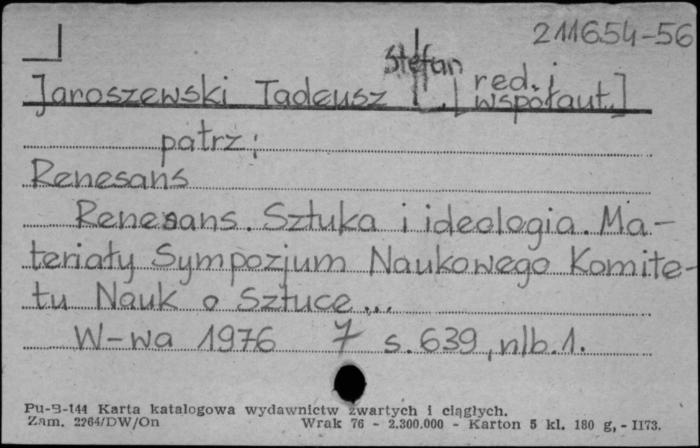 211654-56
Stefan
Jaroszewski Tadeusz [red. i współaut.]
patrz:
Renesans
Renesans. Sztuka i ideologia. Ma-
teriały Sympozjum Naukowego Komite-
tu Nauk o Sztuce...
W-wa 1976 7 s. 639, nlb. 1.
Pu-B-144 Karta katalogowa wydawnictw zwartych i ciągłych.
Zam. 2264/DW/On Wrak 76 - 2.300.000 - Karton 5 kl. 180 g, - II73.